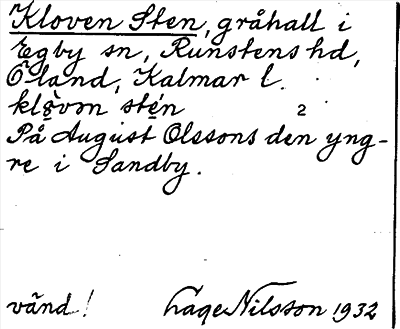 Kloven Sten, gråhall i
Egby sn, Runstens hd,
Öland, Kalmar l.
klo̱vən stén 2
På August Olssons den yng-
re i Sandby.
vänd! Lage Nilsson 1932